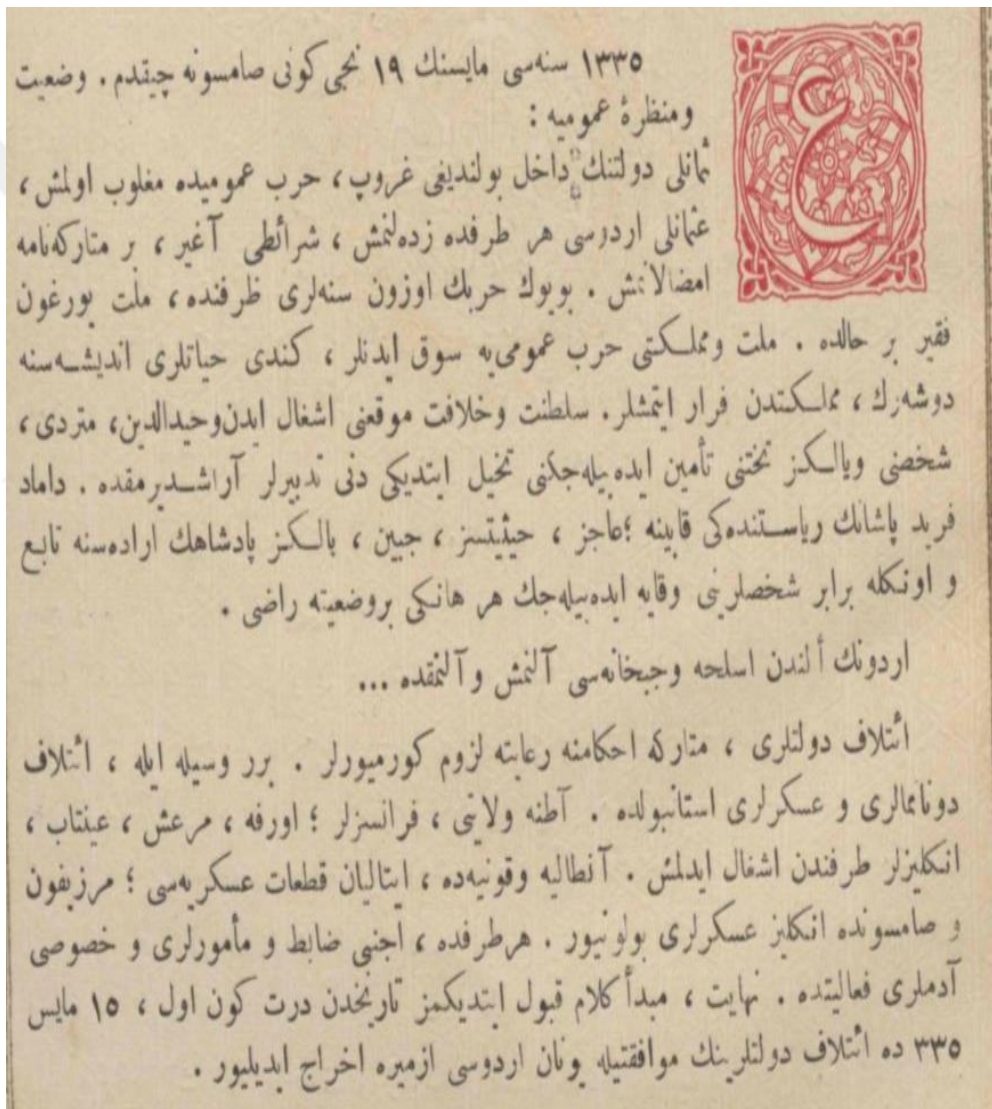 ١٣٣٥ سنه‌سی مایسنك ١٩ نجی كونی صامسونه چیقدم . وضعیت
ومنظرۀ عمومیه :
ع
ثمانلی دولتنك داخل بولندیغی غروپ ، حرب عمومیده مغلوب اولمش ،
عثمانلی اردوسی هر طرفده زده‌لنمش ، شرائطی آغیر ، بر متاركه‌نامه
امضالانمش . بویوك حربك اوزون سنه‌لری ظرفنده ، ملت یورغون
فقیر بر حالده . ملت ومملكتی حرب عمومی‌یه سوق ایدنلر ، كندی حیاتلری اندیشه‌سنه
دوشه‌رك ، مملكتدن فرار ایتمشلر . سلطنت وخلافت موقعنی اشغال ایدن وحیدالدین ، متردی ،
شخصنی ویالكز تختنی تأمین ایده‌بیله‌جكنی تخیل ایتدیكی دنی تدبیرلر آراشدیرمقده . داماد
فرید پاشانك ریاستنده‌كی قابینه ؛ عاجز ، حیثیتسز ، جبین ، یالكز پادشاهك اراده‌سنه تابع
و اونكله برابر شخصلرینی وقایه ایده‌بیله‌جك هر هانكی بروضعیته راضی .
اردونك ألندن اسلحه وجبخانه‌سی آلنمش و آلنمقده ...
ائتلاف دولتلری ، متاركه احكامنه رعایته لزوم كورمیورلر . برر وسیله ایله ، ائتلاف
دونانمالری و عسكرلری استانبولده . آطنه ولایتی ، فرانسزلر ؛ اورفه ، مرعش ، عینتاب ،
انكلیزلر طرفندن اشغال ایدلمش . آنطالیه وقونیه‌ده ، ایتالیان قطعات عسكریه‌سی ؛ مرزیفون
و صامسونده انكلیز عسكرلری بولونیور . هرطرفده ، اجنبی ضابط و مأمورلری و خصوصی
آدملری فعالیتده . نهایت ، مبدأ كلام قبول ایتدیكمز تاریخدن درت كون اول ، ١٥ مایس
٣٣٥ ده ائتلاف دولتلرینك موافقتیله یونان اردوسی ازمیره اخراج ایدیلیور .